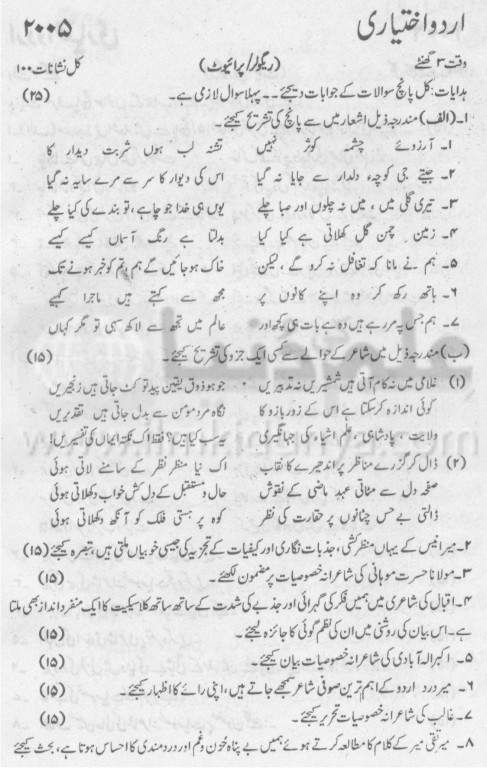 اردو اختیاری ۲۰۰۵
وقت ۳ گھنٹے (ریگولر/پرائیوٹ) کل نشانات ۱۰۰
ہدایات: کل پانچ سوالات کے جوابات دیجئے۔ پہلا سوال لازمی ہے۔ (۲۵)
۱۔ (الف) مندرجہ ذیل اشعار میں سے پانچ کی تشریح کیجئے۔
۱۔ آرزوئے چشمہ کوثر نہیں تشنہ لب ہوں شربت دیدار کا
۲۔ جیتے جی کوچہ دلدار سے جایا نہ گیا اس کی دیوار کا سر سے مرے سایہ نہ گیا
۳۔ تیری گلی میں، میں نہ چلوں اور صبا چلے یوں ہی خدا جو چاہے، تو بندے کی کیا چلے
۴۔ زمین چمن گل کھلاتی ہے کیا کیا بدلتا ہے رنگ آسماں کیسے کیسے
۵۔ ہم نے مانا کہ تغافل نہ کرو گے، لیکن خاک ہو جائیں گے ہم تم کو خبر ہونے تک
۶۔ ہاتھ رکھ کر وہ اپنے کانوں پر مجھ سے کہتے ہیں ماجرا کہیے
۷۔ ہم جس پہ مر رہے ہیں وہ ہے بات ہی کچھ اور عالم میں تجھ سے لاکھ سہی تو مگر کہاں
(ب) مندرجہ ذیل میں شاعر کے حوالے سے کسی ایک جزو کی تشریح کیجئے۔ (۱۵)
(۱) غلامی میں نہ کام آتی ہیں شمشیریں نہ تدبیریں جو ہو ذوق یقین پیدا تو کٹ جاتی ہیں زنجیریں
کوئی اندازہ کر سکتا ہے اس کے زور بازو کا نگاہ مرد مومن سے بدل جاتی ہیں تقدیریں
ولایت، پادشاہی، علم اشیاء کی جہانگیری یہ سب کیا ہیں؟ فقط اک نکتہ ایماں کی تفسیریں!
(۲) ڈال کر گزرے مناظر پر اندھیرے کا نقاب اک نیا منظر نظر کے سامنے لاتی ہوئی
صفحہ دل سے مٹاتی عہد ماضی کے نقوش حال و مستقبل کے دل کش خواب دکھلاتی ہوئی
ڈالتی بے حس چٹانوں پر حقارت کی نظر کوہ پر ہنستی فلک کو آنکھ دکھلاتی ہوئی
۲۔ میر انیس کے یہاں منظر کشی، جذبات نگاری اور کیفیات کے تجزیہ کی جیسی خوبیاں ملتی ہیں، تبصرہ کیجئے۔ (۱۵)
۳۔ مولانا حسرت موہانی کی شاعرانہ خصوصیات پر مضمون لکھئے۔ (۱۵)
۴۔ اقبال کی شاعری میں ہمیں فکر کی گہرائی اور جذبے کی شدت کے ساتھ ساتھ کلاسیکیت کا ایک منفرد انداز بھی ملتا
ہے۔ اس بیان کی روشنی میں ان کی نظم گوئی کا جائزہ لیجئے۔ (۱۵)
۵۔ اکبر الہ آبادی کی شاعرانہ خصوصیات بیان کیجئے۔ (۱۵)
۶۔ میر درد اردو کے اہم ترین صوفی شاعر سمجھے جاتے ہیں، اپنی رائے کا اظہار کیجئے۔ (۱۵)
۷۔ غالب کی شاعرانہ خصوصیات تحریر کیجئے۔ (۱۵)
۸۔ میر تقی میر کے کلام کا مطالعہ کرتے ہوئے ہمیں بے پناہ حزن و غم اور درد مندی کا احساس ہوتا ہے، بحث کیجئے